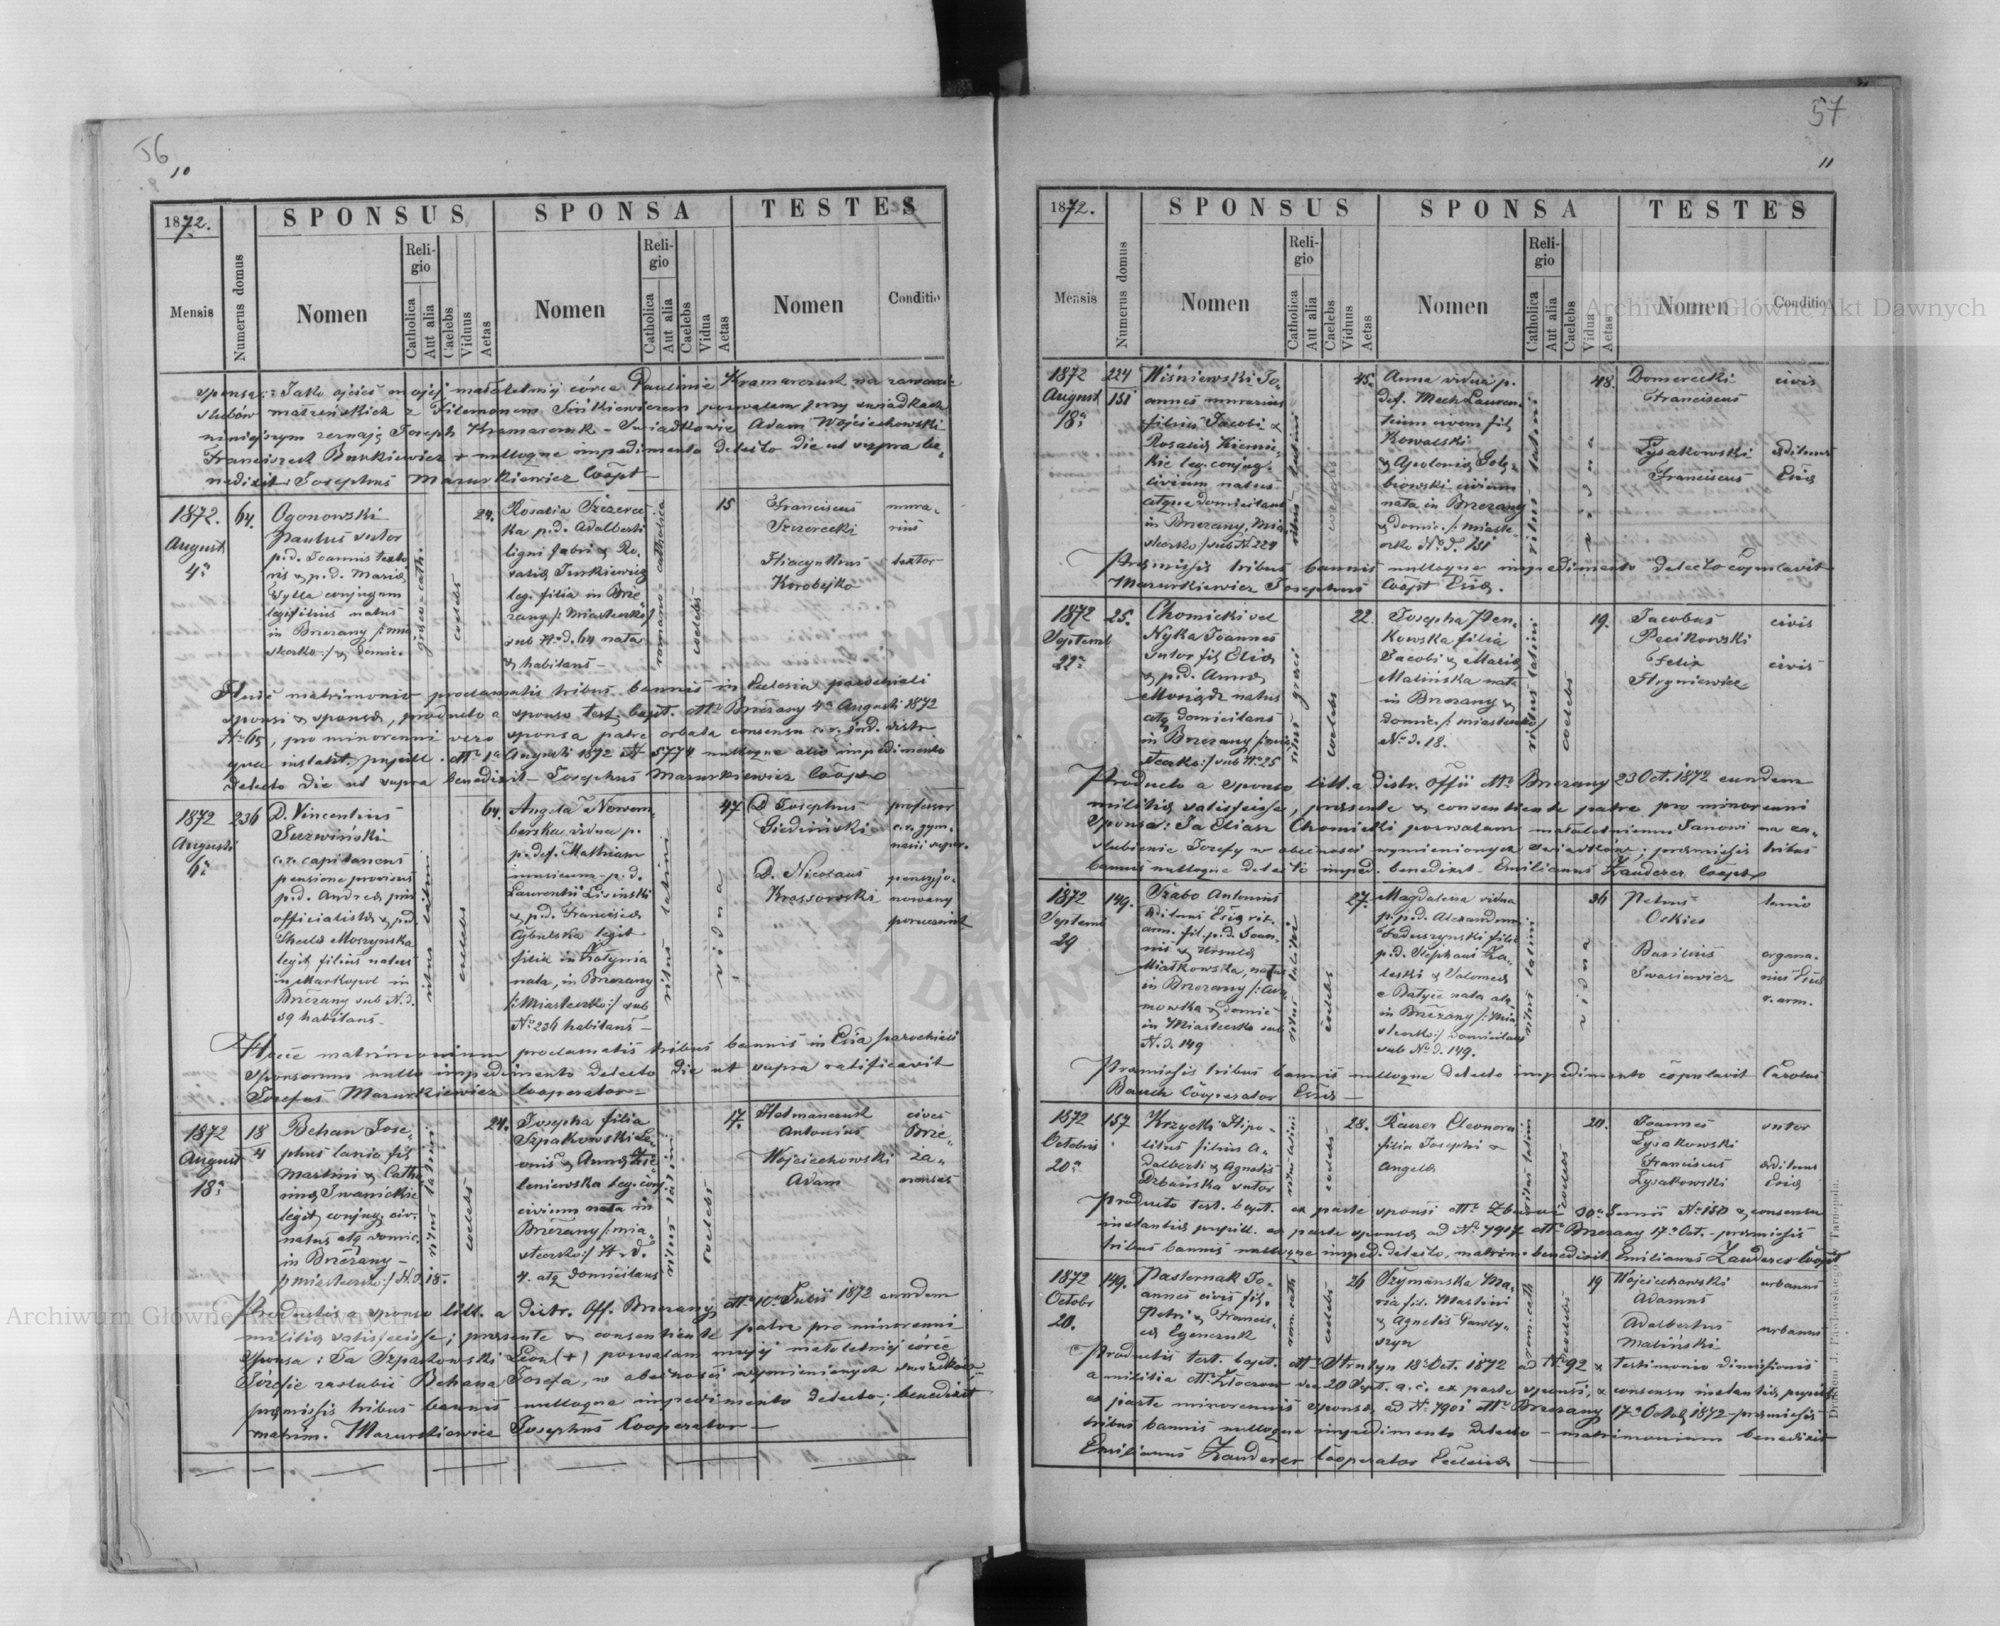 56
10
1872.
SPONSUS
SPONSA
TESTES
Mensis
Numerus domus
Nomen
Religio
Catholica
Aut alia
Caelebs
Viduus
Aetas
Nomen
Religio
Catholica
Aut alia
Caelebs
Vidua
Aetas
Nomen
Conditio
sponsa: Jako ojciec mojej małoletniej córce Paulinie Kramarczuk na zawarcie
ślubów małżeńskich z Filemonem Sinkiewiczem pozwalam przy świadkach
niniejszym zeznaję Joseph Kramarczuk – Swiadkowie Adam Wojciechowski
Franciszek Burkiewicz + nulloque impedimento detecto die ut supra be-
nedixit Josephus Mazurkiewicz Coopt
1872.
August
4a
64.
Ogonowski
Paulus sutor
p.d. Joannis texto
ris & p.d. Maria
Tylla conjugum
legi filius natus
in Brzezany /: mia
steczko :/ & domic.
graeco-cath.
coelebs
24.
Rosalia
ka p.d. Adalberti
ligni fabri & Ro-
salia Turkiewicz
leg. filia in Brze
zany /: Miasteczko /
sub N. d. 64 nata
& habitans –
romano-catholica
coelebs
15
Franciscus
Szczerecki
mura-
rius
Hiacynthus
Korobejko
textor
Huic matrimonio proclamatis tribus bannis in Ecclesia parochiali
sponsi & sponsa, producto a sponso test. bapt. dtto Brzezany 4a Augusti 1872
No 65, pro minorenni vero sponsa patre orbata consensu c. r. jud. distr.
qua instant. pupill. dtto 1a Augusti 1872 N 5774 nulloque alio impedimento
detecto die ut supra benedixit – Josephus Mazurkiewicz Coopt
1872
Augusti
6a
236
D. Vincentius
Suzwiński
c.r. capitaneus
pensione provisus
p.d. Andrea priv.
officialista & p.d.
Thecla Moszynska
legit. filius natus
in Markopol in
Brzezany sub N. d.
59 habitans –
ritus latini
coelebs
64.
Angela Nowom-
berska vidua p.
p. def. Mathiam
musicum – p.d.
Laurentii Lisinski
& p.d. Francisca
Cybulska legit
filia in Hołynia
nata, in Brzezany
/: Miasteczko :/ sub
No 236 habitans –
ritus latini
vidua
47.
D. Josephus
Giedziński
professor
c.r. gym-
nasii super.
D. Nicolaus
Krassowski
pensyjo-
nowany
porucznik
Hocce matrimonium proclamatis tribus bannis in Ecclia parochiali
sponsorum nullo impedimento detecto die ut supra ratificavit
Josefus Mazurkiewicz Cooperator –
1872
August
18a
18
4
Behan Jose-
phus lanio fil.
Martini & Catha
rina Iwanickie
legit. conjug. civ.
natus atq. domic.
in Brzezany –
/: miasteczko :/ N. d. 18.
ritus latini
coelebs
24.
Josepha filia
Szpakowski Le-
onis & Anna Zie
leniewska leg. conj.
civium nata in
Brzezany /: mia-
steczko :/ N. d.
4. atq domicilans
ritus latini
coelebs
17.
Hatmanczuk
Antonius
cives
Brze-
Wojciechowski
Adam
za-
nenses
Productis a sponso litt. a distr. Off. Brzezany dtto 10a Julii 1872 eundem
militia satisfecisse; praesente & consentiente patre pro minorenni
sponsa: Ja Szpakowski Leon (+) pozwalam mojej małoletniej córce
Józefie zaślubić Behana Josefa, w obecności wymienionych świadków;
praemissis tribus bannis nulloque impedimento detecto; benedixit
matrim. Mazurkiewicz Josephus Cooperator –
57
11
1872.
SPONSUS
SPONSA
TESTES
Mensis
Numerus domus
Nomen
Religio
Catholica
Aut alia
Caelebs
Viduus
Aetas
Nomen
Religio
Catholica
Aut alia
Caelebs
Vidua
Aetas
Nomen
Conditio
1872
August
18a
224
151
Wiśniewski Jo-
annes murarius
filius Jacobi &
Rosalia
kie leg. conjug.
civium natus
atque domicilans
in Brzezany, Mia-
steczko / sub N 224
ritus latini
coelebs
45.
Anna vidua p.
def. Mech Lauren-
tium civem fil.
Kowalski
& Apolonia Golę-
biowski civium
nata in Brzezany
& domic. /: miaste-
czko No d. 151
ritus latini
vidua
48.
Domerecki
Franciscus
civis
Łysakowski
Franciscus
aedituus
Eccla
Praemissis tribus bannis nulloque impedimento detecto copulavit
Mazurkiewicz Josephus Coopt Eccla.
1872
Septemb
22a
25.
Chomicki vel
Nyka Joannes
sutor fil. Elia
& p.d. Anna
natus
atq domicilans
in Brzezany /: mia
steczko :/ sub No 25
ritus graeci
coelebs
22.
Josepha Pen-
kowska filia
Jacobi & Maria
Malińska nata
in Brzezany &
domic. /: miasteczko /
No d. 18.
ritus latini
coelebs
19.
Jacobus
Pecikowski
civis
Felix
Hryniewicz
civis
Producto a sponso litt. a distr. Offii dtto Brzezany 23 Oct. 1872 eundem
militia satisfecisse, praesente & consentiente patre pro minorenni
Sponsa: Ja Eliasz Chomicki pozwalam małoletniemu Janowi na za-
ślubienie Józefy w obecności wymienionych świadków; praemissis tribus
bannis nulloque detecto imped. benedixit – Emilianus Zauderer Coopt
1872
Septemb
29
149.
Szabo Antonius
aedituus Eccla rit.
arm. fil. p.d. Joan-
nis & Ursula
Miałkowska, natus
in Brzezany /: Ada
mowka & domic
in Miasteczko sub
N. d. 149
ritus latini
coelebs
27.
Magdalena vidua
p. p.d. Alexandrum
Feduszynski filia
p.d. Stephani Za-
leski & Salomea
e Batyce nata atq
in Brzezany /: Mia
steczko :/ domicilans
sub No d. 149.
ritus latini
vidua
36
Petrus
Oskies
lanio
Basilius
Iwasiewicz
organa-
rius Eccla
r. arm.
Praemissis tribus bannis nulloque detecto impedimento copulavit Carolus
Bauch Cooperator Eccla –
1872
Octobris
20a
157
Krzycki Hipo-
litus filius A-
dalberti & Agnetis
Drbańska sutor
ritus latini
coelebs
28.
Rauer Eleonora
filia Josephi &
Angela
ritus latini
coelebs
20.
Joannes
Łysakowski
sutor
Franciscus
Łysakowski
aedituus
Eccla
Producto test. bapt. ex parte sponsi dtto Zbaraż 30a Junii No 150 & consensu
instantia pupill. ex parte sponsa ad No 7917 dtto Brzezany 17a Oct. – praemissis
tribus bannis nulloque imped. detecto, matrim. benedixit Emilianus Zauderer Coopt
1872
Octobr
20.
149.
Pasternak Jo-
annes civis fil.
Petri & Francis-
ca Egenczuk
rom. cath
coelebs
26
Szymańska Ma-
ria fil. Martini
& Agnetis Gawły-
szyn
rom. cath
coelebs
19
Wojciechowski
Adamus
urbanus
Adalbertus
Maliński
urbanus
Productis test. bapt. dtto Stratyn 18a Oct. 1872 ad No 92 & testimonio dimissionis
a militia dtto Złoczow die 20 Sept. a. c. ex parte sponsi, & consensu instantia pupill.
ex parte minorennis sponsa ad No 7901 dtto Brzezany 17a Octob 1872 – praemissis
tribus bannis nulloque impedimento detecto – matrimonium benedixit
Emilianus Zauderer Cooperator Ecclesia
Drukiem J. Pawłowskiego w Tarnopolu.
Archiwum Główne Akt Dawnych
Archiwum Główne Akt Dawnych